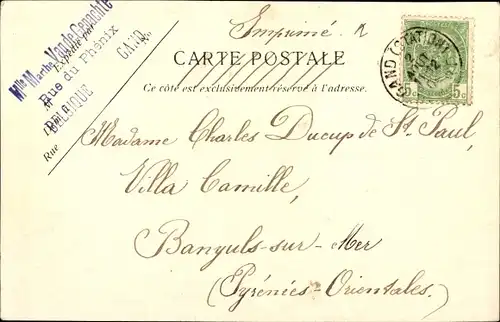 Imprimé
Mlle Marthe Van de Capoulle
Rue du Phénix
GAND
BELGIQUE
Rue
CARTE POSTALE
Ce côté est exclusivement réservé à l'adresse.
GAND (STATION)
5c 5c
Madame Charles Ducup de St. Paul,
Villa Camille,
Banyuls-sur-Mer
(Pyrénées-Orientales.)